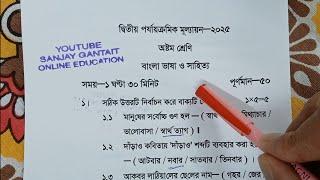 দ্বিতীয় পর্যায়ক্রমিক মূল্যায়ন-২০২৫
YOUTUBE
SANJAY GANTAIT
ONLINE EDUCATION
অষ্টম শ্রেণি
বাংলা ভাষা ও সাহিত্য
সময়-১ ঘণ্টা ৩০ মিনিট পূর্ণমান-৫০
১। সঠিক উত্তরটি নির্বাচন করে বাক্যটি ১×৫=৫
১.১ মানুষের সর্বোচ্চ গুণ হল – (স্বার্থ
ভালোবাসা / স্বার্থ ত্যাগ)।
১.২ দাঁড়াও কবিতায় 'দাঁড়াও' শব্দটি ব্যবহার করা
(আটবার / নবার / সাতবার / তিনবার)।
১.৩ আকবর লাঠিয়ালের ছেলের নাম – (গহর / জের